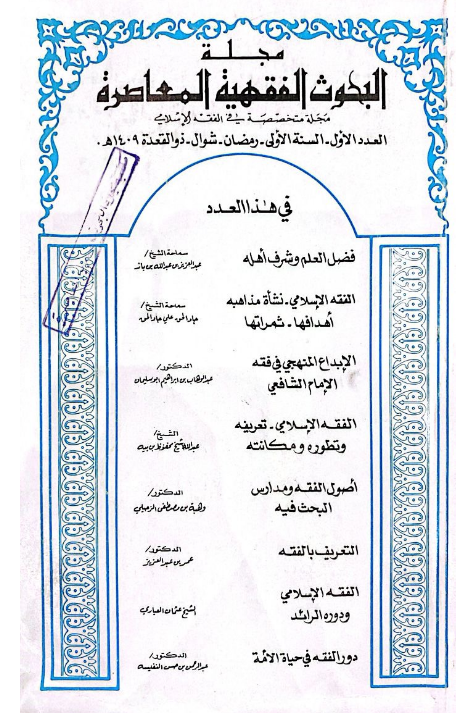 مجلة
البحوث الفقهية المعاصرة
مجلة متخصصة في الفقه الإسلامي
العدد الأول - السنة الأولى - رمضان - شوال - ذو القعدة ١٤٠٩هـ.
في هذا العدد
فضل العلم وشرف أهله
سماحة الشيخ/
عبدالعزيز بن عبدالله بن باز
الفقه الإسلامي - نشأة مذاهبه
أهدافها - ثمراتها
سماحة الشيخ/
جاد الحق علي جاد الحق
الإبداع المنهجي في فقه
الإمام الشافعي
الدكتور/
عبدالوهاب بن ابراهيم ابوسليمان
الفقه الإسلامي - تعريفه
وتطوره ومكانته
الشيخ/
عبدالله الشيخ محفوظ بن بيه
أصول الفقه ومدارس
البحث فيه
الدكتور/
وهبة بن مصطفى الزحيلي
التعريف بالفقه
الدكتور/
عمر بن عبدالعزيز
الفقه الإسلامي
ودوره الرائد
الشيخ عثمان
دور الفقه في حياة الأمة
الدكتور/
عبدالرحمن بن حسن النفيسه